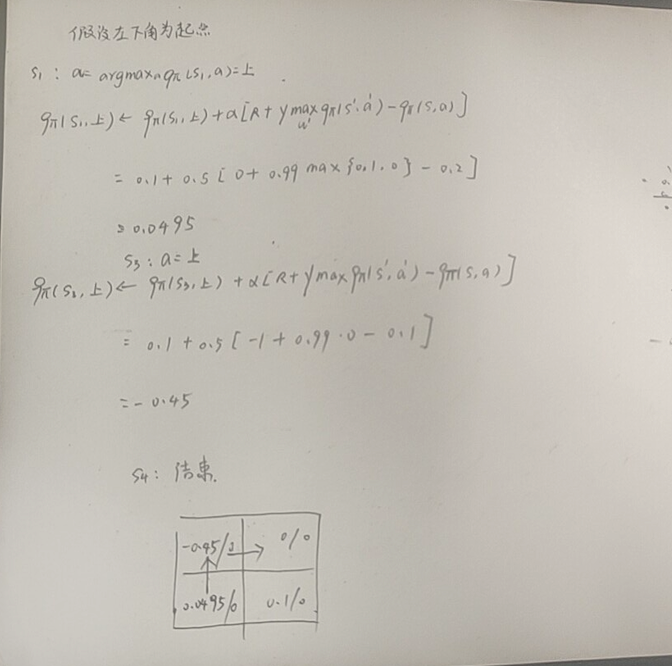 假设左下角为起点
S₁ : a= argmaxₐ qπ(S₁,a)=上
qπ(S₁,上) ← qπ(S₁,上)+α[R+γ max qπ(s',a')-qπ(s,a)]
a'
= 0.1+ 0.5 [0+ 0.99 max{0.1,0} - 0.2]
= 0.0495
S₃ : a=上
qπ(S₃,上) ← qπ(S₃,上) + α[R+γmax qπ(s',a')-qπ(s,a)]
= 0.1+0.5 [-1+0.99·0-0.1]
=-0.45
S₄ : 结束.
-0.45/ 0/0
0.0495/0 0.1/0